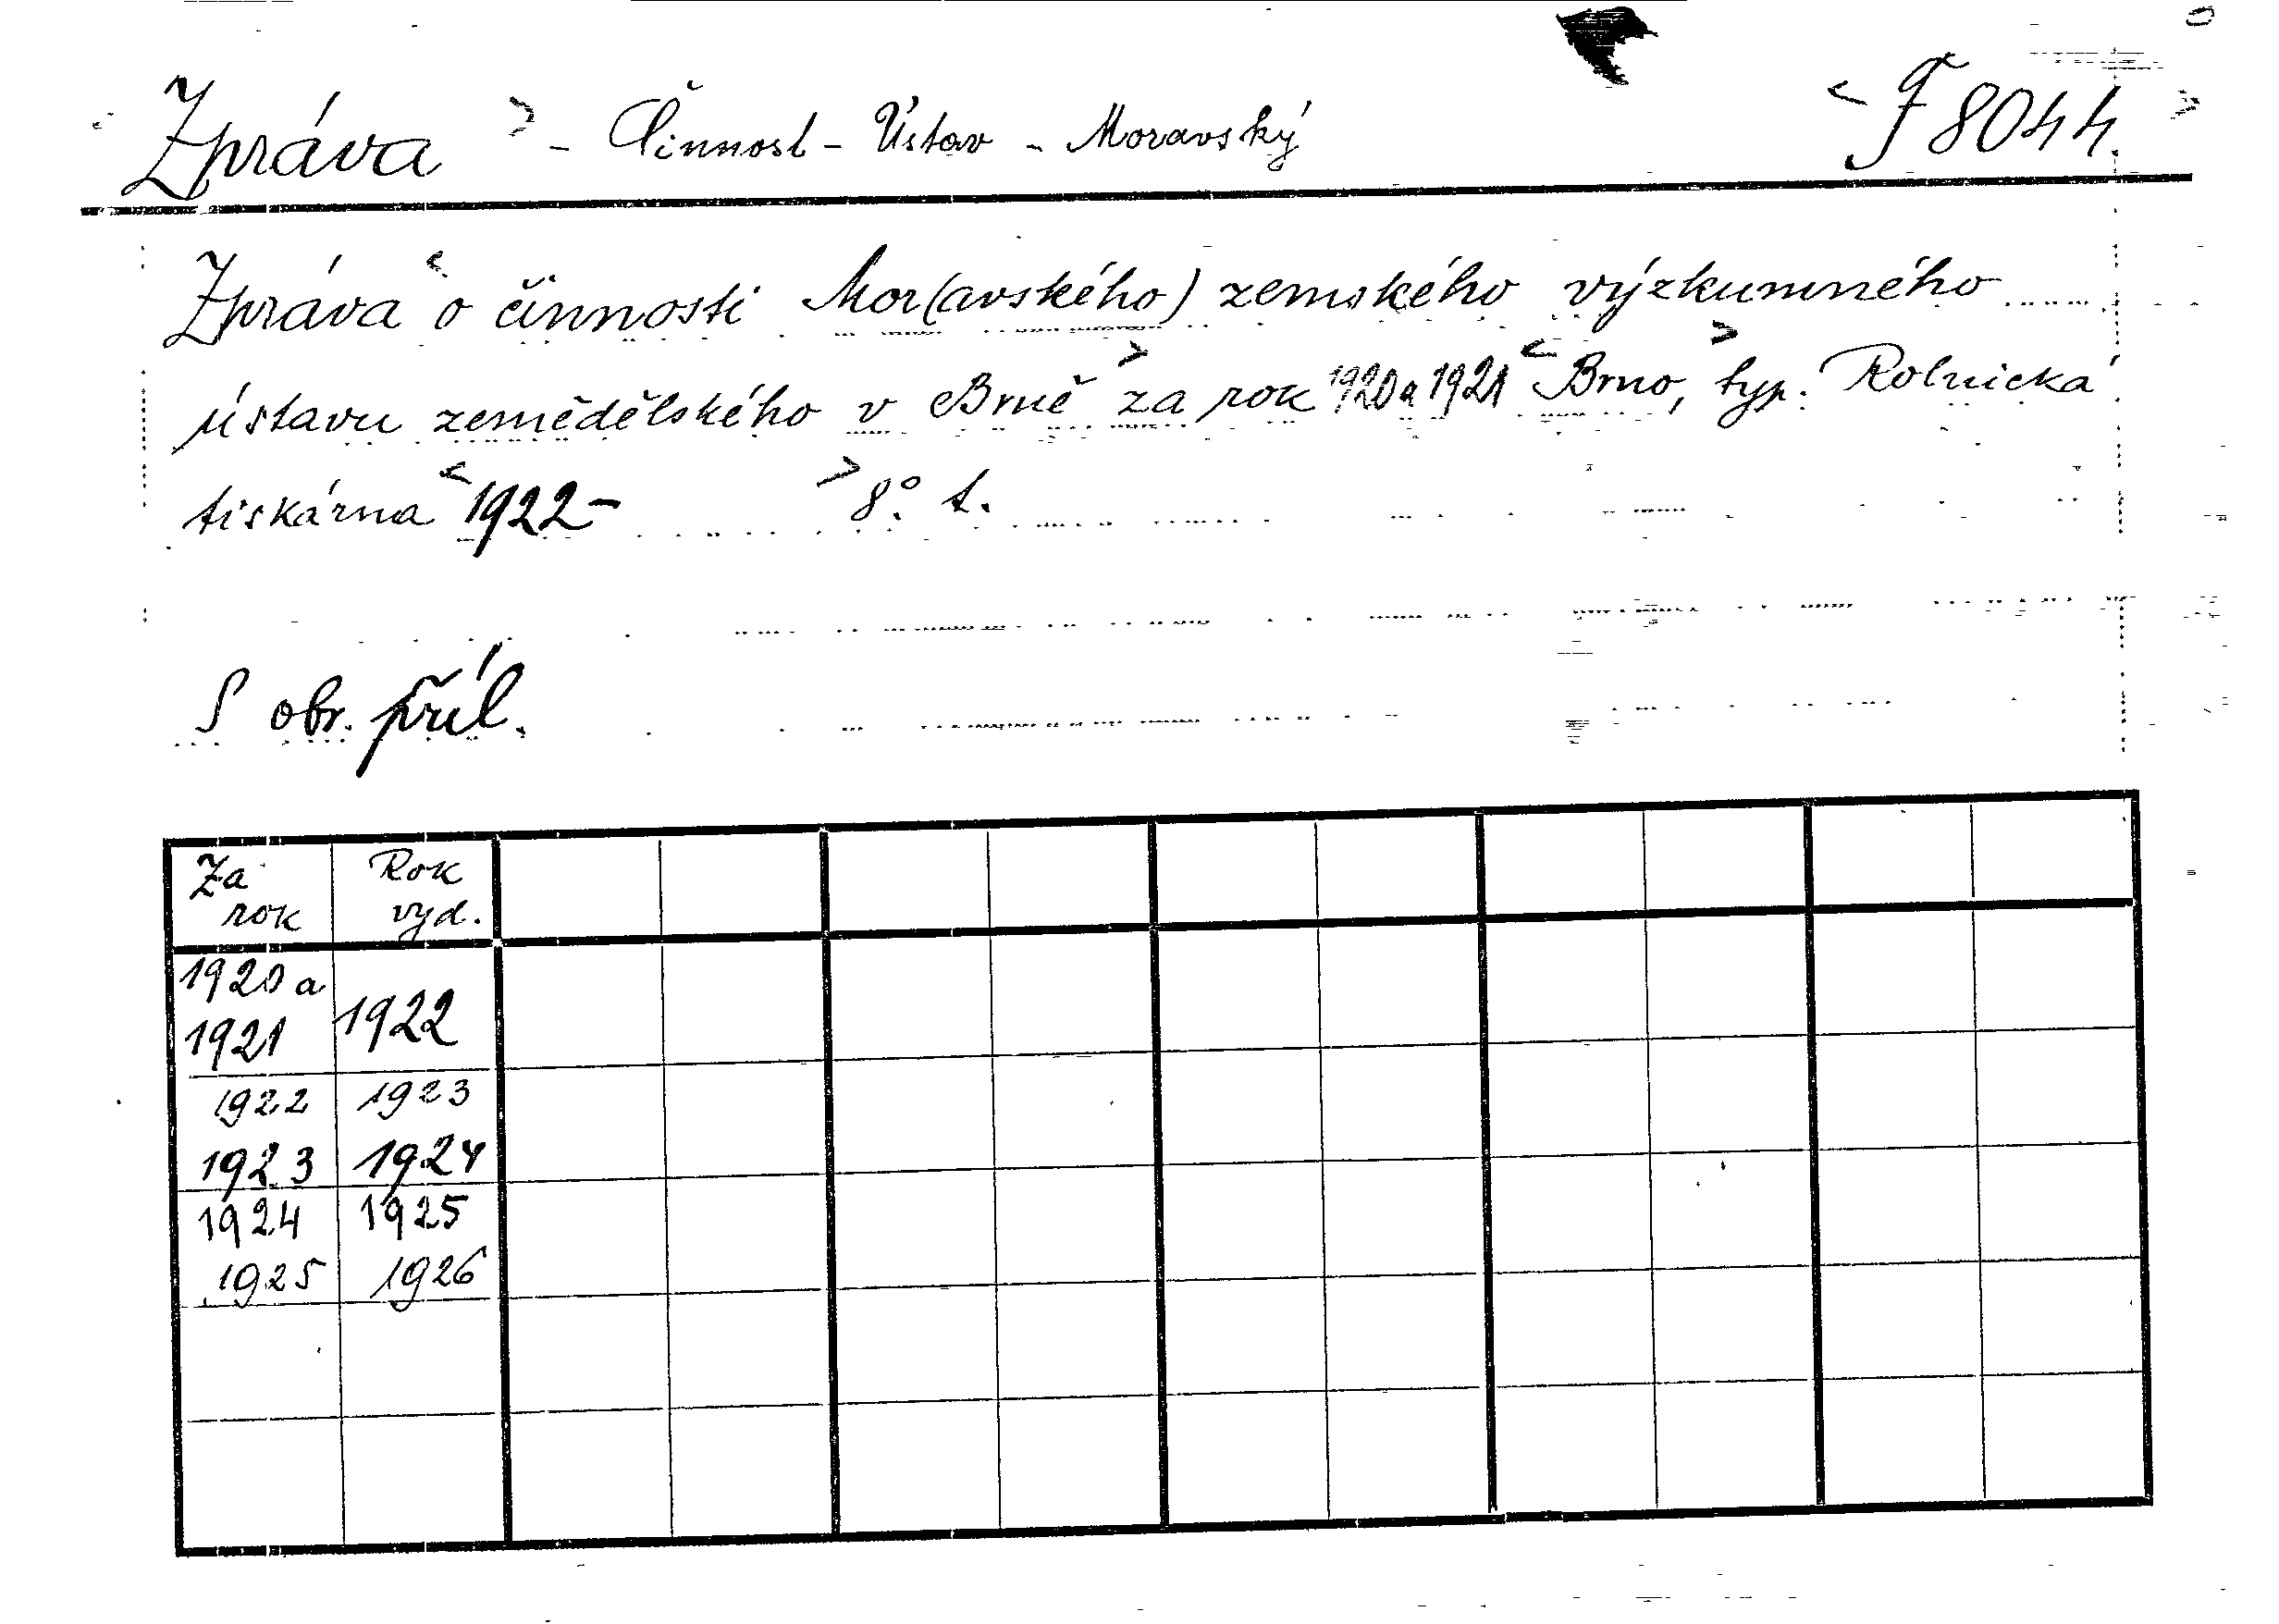 Zpráva - Činnost - Ústav - Moravský F 8044
Zpráva o činnosti Mor(avského) zemského výzkumného
ústavu zemědělského v Brně za rok 1920 a 1921 Brno, typ. Rolnická
tiskárna 1922- 8°. t.
S obr. příl.
Za rok Rok vyd.
1920 a 1921 1922
1922 1923
1923 1924
1924 1925
1925 1926